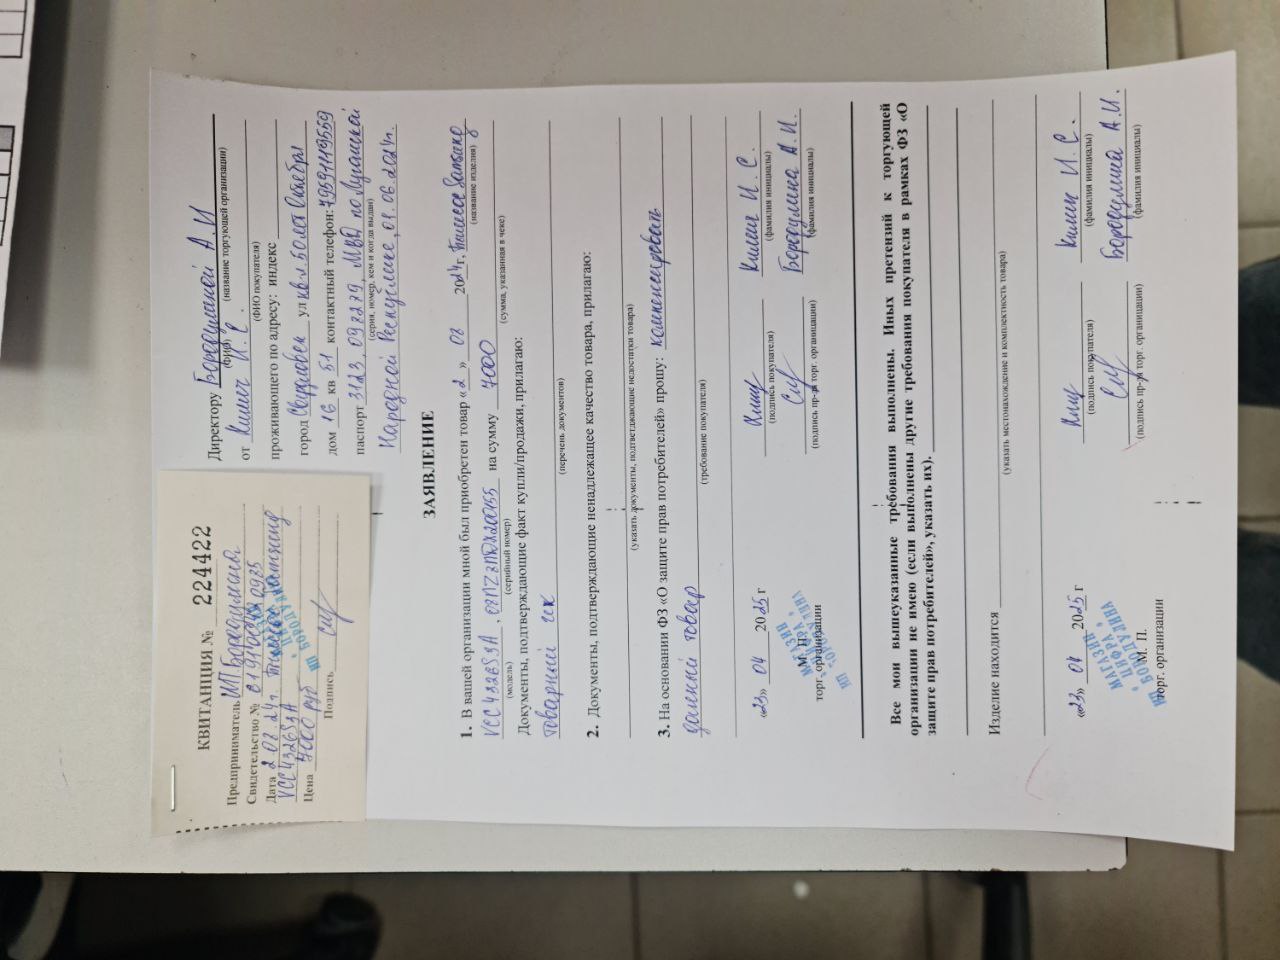 КВИТАНЦИЯ № 224422
Предприниматель ИП Бородулина
Свидетельство №
Дата 2.08.24г. пылесос Samsung
VCC4326S3A
Цена 7000 руб
Подпись
Директору Бородулиной А.И
(ФИО) (название торгующей организации)
от Килич И.С.
(ФИО покупателя)
проживающего по адресу: индекс
город Свердловск ул кв-л. 50 лет Октября
дом 16 кв 51 контактный телефон: 79591149559
паспорт 3123, 098279, МВД по Луганской
(серия, номер, кем и когда выдан)
Народной Республике, 01.06.2024г.
ЗАЯВЛЕНИЕ
1. В вашей организации мной был приобретен товар «2» 08 2024г, Пылесос Samsung
(название изделия)
VCC4326S3A, на сумму 7000
(модель) (серийный номер) (сумма, указанная в чеке)
Документы, подтверждающие факт купли/продажи, прилагаю:
товарный чек
(перечень документов)
2. Документы, подтверждающие ненадлежащее качество товара, прилагаю:
(указать документы, подтверждающие недостатки товара)
3. На основании ФЗ «О защите прав потребителей» прошу: компенсировать
данный товар
(требование покупателя)
«23» 04 2025 г Килич И.С.
(подпись покупателя) (фамилия инициалы)
М. П. Бородулина А.И.
торг. организации (подпись пр-ля торг. организации) (фамилия инициалы)
МАГАЗИН
"ЦИФРА"
ИП БОРОДУЛИНА
Все мои вышеуказанные требования выполнены. Иных претензий к торгующей
организации не имею (если выполнены другие требования покупателя в рамках ФЗ «О
защите прав потребителей», указать их).
Изделие находится
(указать местонахождение и комплектность товара)
«23» 04 2025 г Килич И.С.
(подпись покупателя) (фамилия инициалы)
МАГАЗИН
"ЦИФРА"
ИП БОРОДУЛИНА
М. П. Бородулина А.И.
торг. организации (подпись пр-ля торг. организации) (фамилия инициалы)